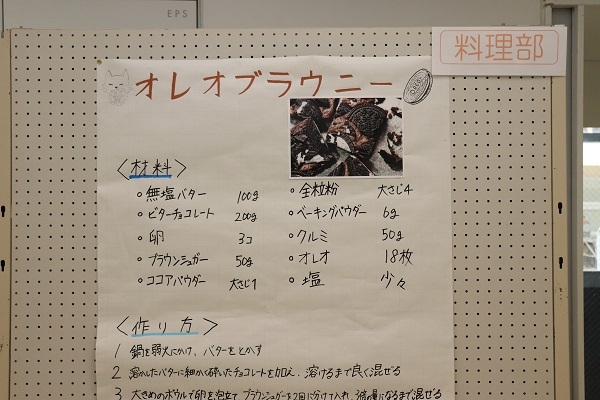 EPS
料理部
オレオブラウニー
〈材料〉
○無塩バター 100g
○ビターチョコレート 200g
○卵 3コ
○ブラウンシュガー 50g
○ココアパウダー 大さじ1
○全粒粉 大さじ4
○ベーキングパウダー 6g
○クルミ 50g
○オレオ 18枚
○塩 少々
〈作り方〉
1 鍋を弱火にかけ、バターをとかす
2 溶かしたバターに細かく砕いたチョコレートを加え、溶けるまで良く混ぜる
3 大きめのボウルで卵を泡立て ブラウンシュガーを2回に分けて入れ、になるまで混ぜる